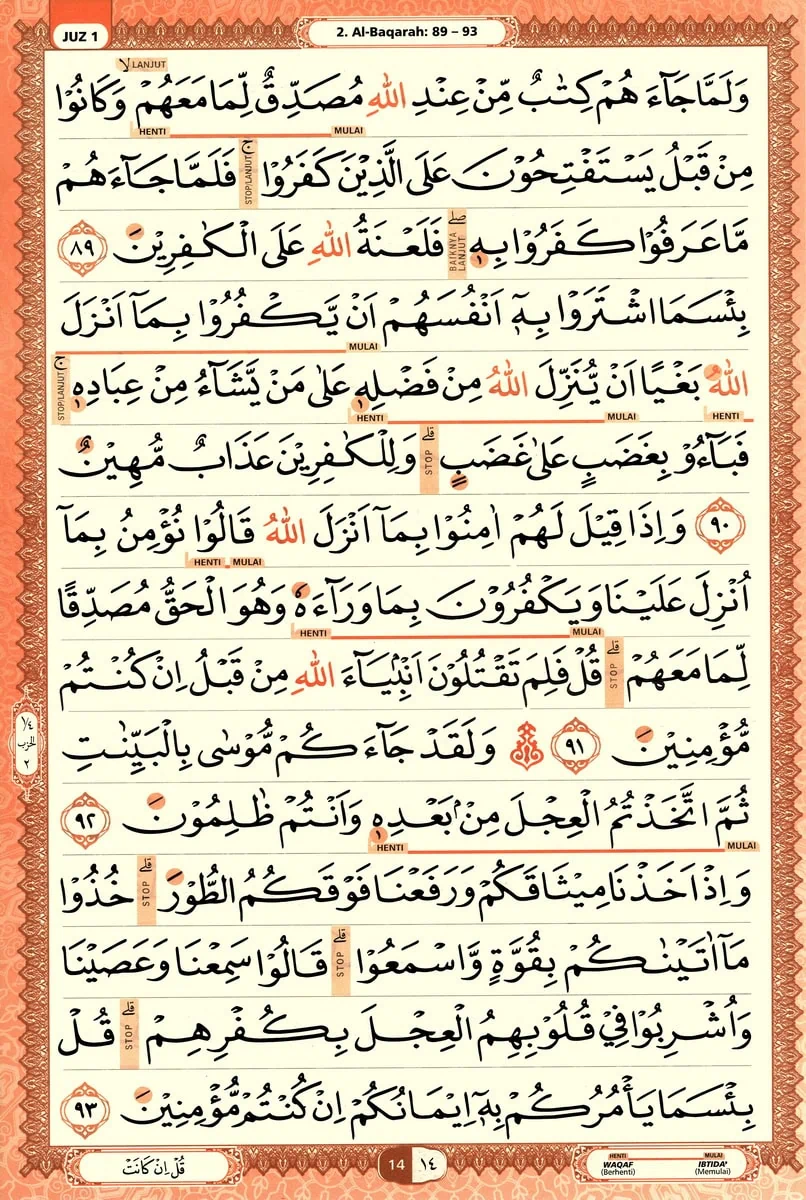 JUZ 1
2. Al-Baqarah: 89 – 93
لا LANJUT
وَلَمَّا جَاۤءَ هُمْ كِتٰبٌ مِّنْ عِنْدِ اللّٰهِ مُصَدِّقٌ لِّمَا مَعَهُمْ وَكَانُوْا
HENTI MULAI
مِنْ قَبْلُ يَسْتَفْتِحُوْنَ عَلَى الَّذِيْنَ كَفَرُوْا ۚ STOP/LANJUT فَلَمَّا جَاۤءَ هُمْ
مَّا عَرَفُوْا كَفَرُوْا بِهٖ ۖ BAIKNYA LANJUT فَلَعْنَةُ اللّٰهِ عَلَى الْكٰفِرِيْنَ ٨٩
بِئْسَمَا اشْتَرَوْا بِهٖٓ اَنْفُسَهُمْ اَنْ يَّكْفُرُوْا بِمَآ اَنْزَلَ
MULAI
اللّٰهُ بَغْيًا اَنْ يُّنَزِّلَ اللّٰهُ مِنْ فَضْلِهٖ عَلٰى مَنْ يَّشَاۤءُ مِنْ عِبَادِهٖ ۚ STOP/LANJUT
HENTI MULAI HENTI
فَبَاۤءُوْ بِغَضَبٍ عَلٰى غَضَبٍ ۗ STOP وَلِلْكٰفِرِيْنَ عَذَابٌ مُّهِيْنٌ
٩٠ وَاِذَا قِيْلَ لَهُمْ اٰمِنُوْا بِمَآ اَنْزَلَ اللّٰهُ قَالُوْا نُؤْمِنُ بِمَآ
HENTI MULAI
اُنْزِلَ عَلَيْنَا وَيَكْفُرُوْنَ بِمَا وَرَاۤءَهٗ وَهُوَ الْحَقُّ مُصَدِّقًا
HENTI MULAI
لِّمَا مَعَهُمْ ۗ STOP قُلْ فَلِمَ تَقْتُلُوْنَ اَنْۢبِيَاۤءَ اللّٰهِ مِنْ قَبْلُ اِنْ كُنْتُمْ
مُّؤْمِنِيْنَ ٩١ وَلَقَدْ جَاۤءَ كُمْ مُّوْسٰى بِالْبَيِّنٰتِ
١/٤ الحزب ٢
ثُمَّ اتَّخَذْتُمُ الْعِجْلَ مِنْۢ بَعْدِهٖ وَاَنْتُمْ ظٰلِمُوْنَ ٩٢
HENTI MULAI
وَاِذْ اَخَذْنَا مِيْثَاقَكُمْ وَرَفَعْنَا فَوْقَكُمُ الطُّوْرَ ۗ STOP خُذُوْا
مَآ اٰتَيْنٰكُمْ بِقُوَّةٍ وَّاسْمَعُوْا ۗ STOP قَالُوْا سَمِعْنَا وَعَصَيْنَا
وَاُشْرِبُوْا فِيْ قُلُوْبِهِمُ الْعِجْلَ بِكُفْرِهِمْ ۗ STOP قُلْ
بِئْسَمَا يَأْمُرُكُمْ بِهٖٓ اِيْمَانُكُمْ اِنْ كُنْتُمْ مُّؤْمِنِيْنَ ٩٣
قُلْ اِنْ كَانَتْ
14 ١٤
HENTI MULAI
WAQAF IBTIDA'
(Berhenti) (Memulai)